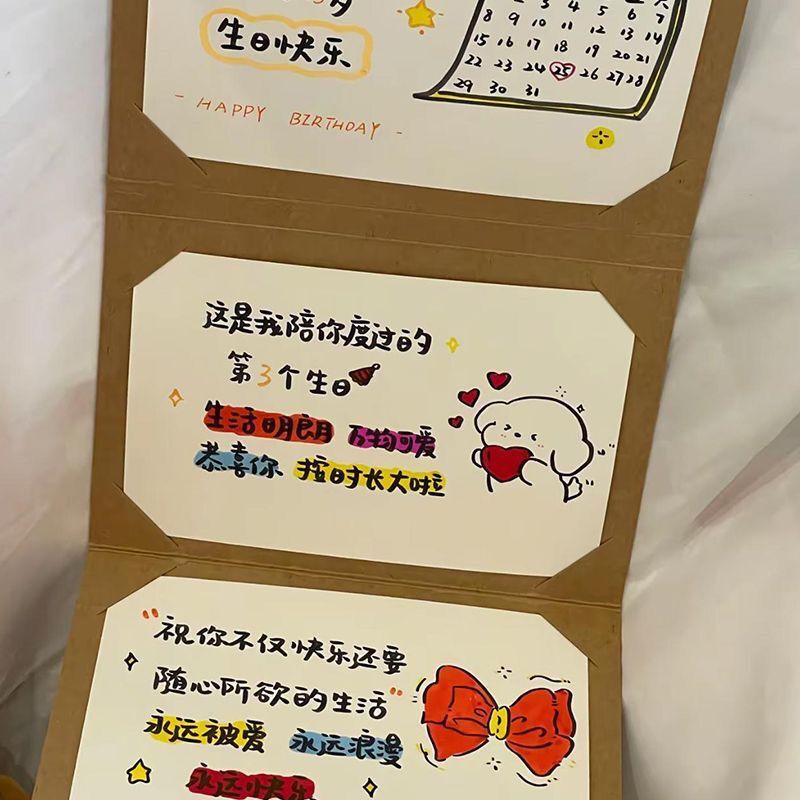 生日快乐
- HAPPY BIRTHDAY -
3 4 5 6 7
8 9 10 11 12 13 14
15 16 17 18 19 20 21
22 23 24 25 26 27 28
29 30 31
这是我陪你度过的
第3个生日
生活明朗 万物可爱
恭喜你 按时长大啦
"祝你不仅快乐还要
随心所欲的生活"
永远被爱 永远浪漫
永远快乐